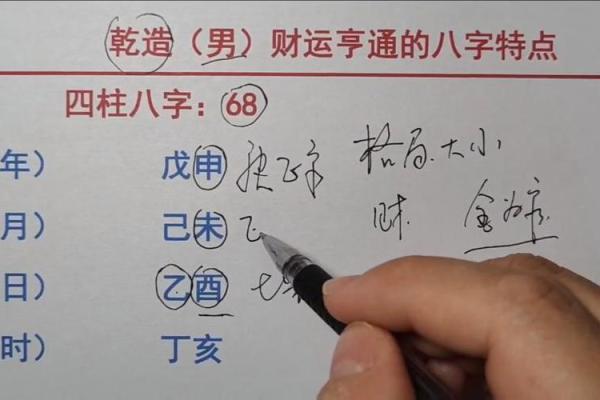 乾造（男）财运亨通的八字特点
四柱八字：68
年） 戊申 格局.大小
月） 己未 财
日） 乙酉 七
时） 丁亥